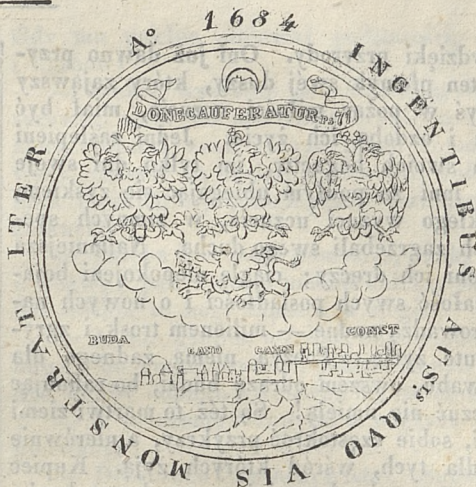 A.o 1684 INGENTIBUS AUS.is QVO VIS MONSTRAT ITER
DONEC AUFERATUR Ps 71
BUDA
CONST